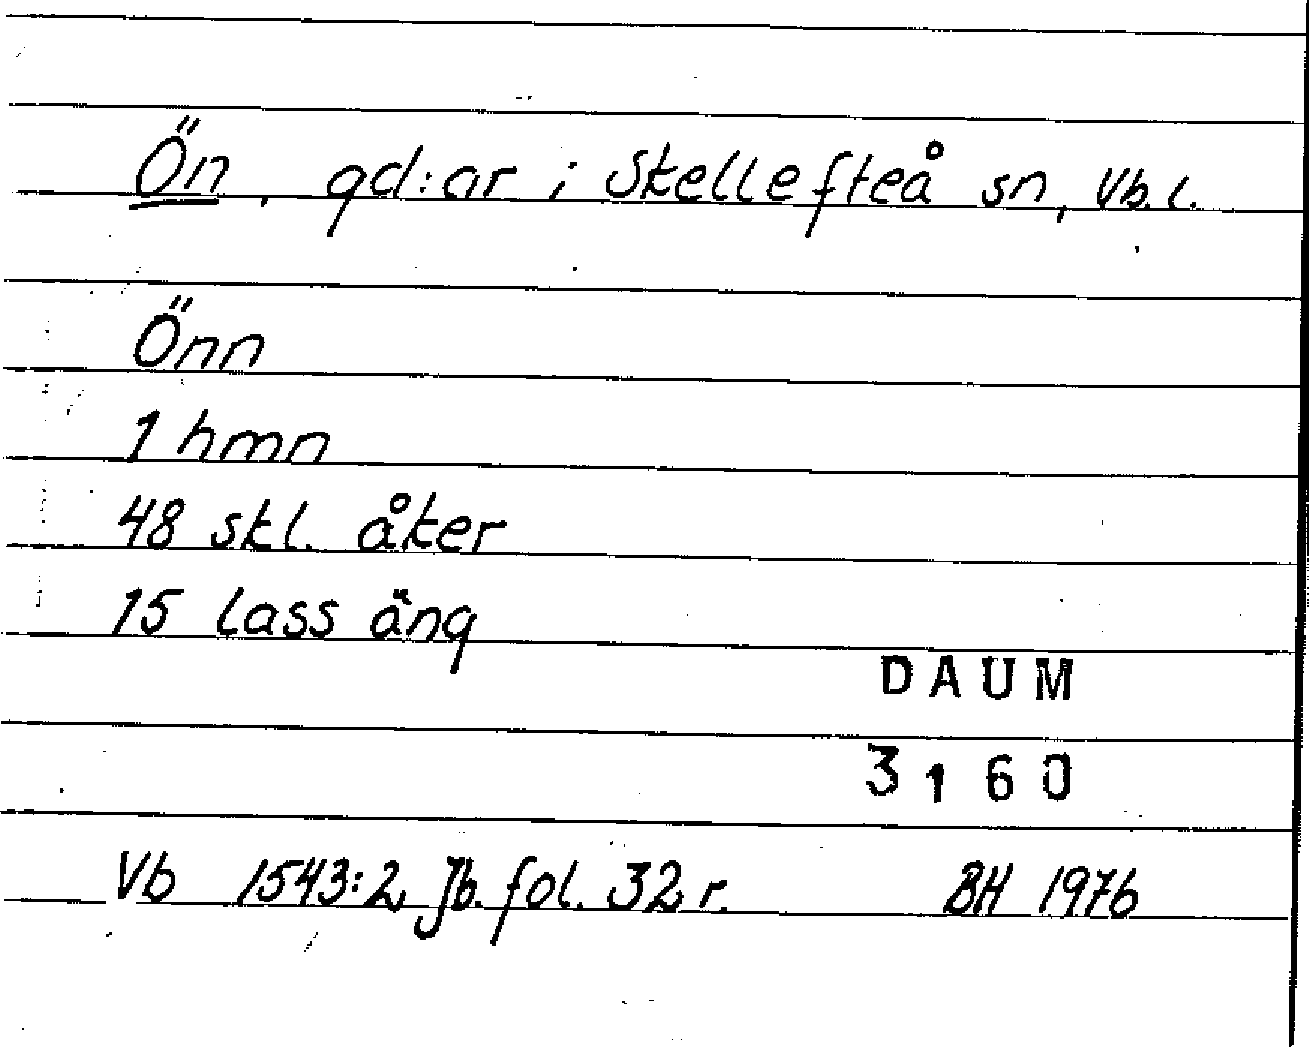 Ön, gd:ar i Skellefteå sn, Vb. l.
Önn
1 hmn
48 skl. åker
15 lass äng
DAUM
3160
Vb 1543:2, Jb. fol. 32 r. BH 1976